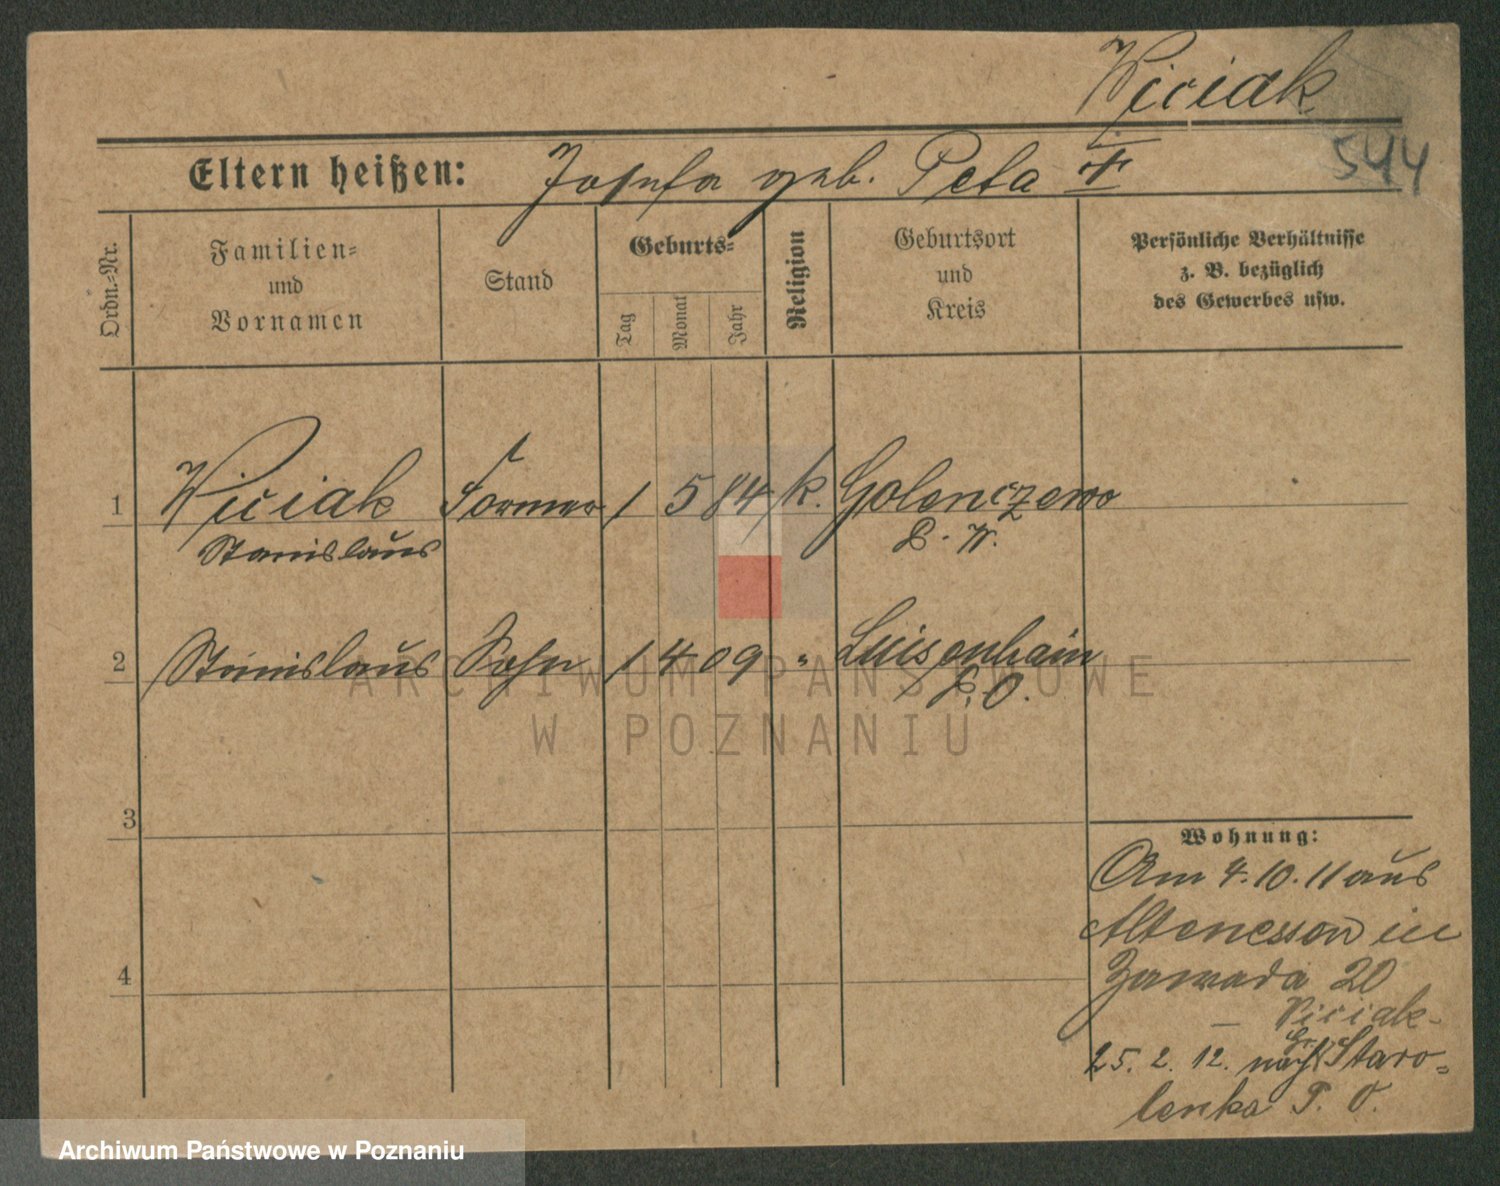 Wiciak
544
Eltern heißen: Josefa geb. Peta
Ordn.-Nr.
Familien-
und
Vornamen
Stand
Geburts-
Tag
Monat
Jahr
Religion
Geburtsort
und
Kreis
Persönliche Verhältnisse
z. B. bezüglich
des Gewerbes usw.
1 Wiciak Former 1 5 84 k. Golenczewo
Stanislaus P. W.
2 Stanislaus Sohn 1 4 09 " Luisenhain
P. O.
3
4
Wohnung:
Am 4. 10. 11 aus
Altenessen in
Zawada 20
– Wiciak –
25. 2. 12. nach Gr. Staro-
lenka P. O.
ARCHIWUM PAŃSTWOWE
W POZNANIU
Archiwum Państwowe w Poznaniu